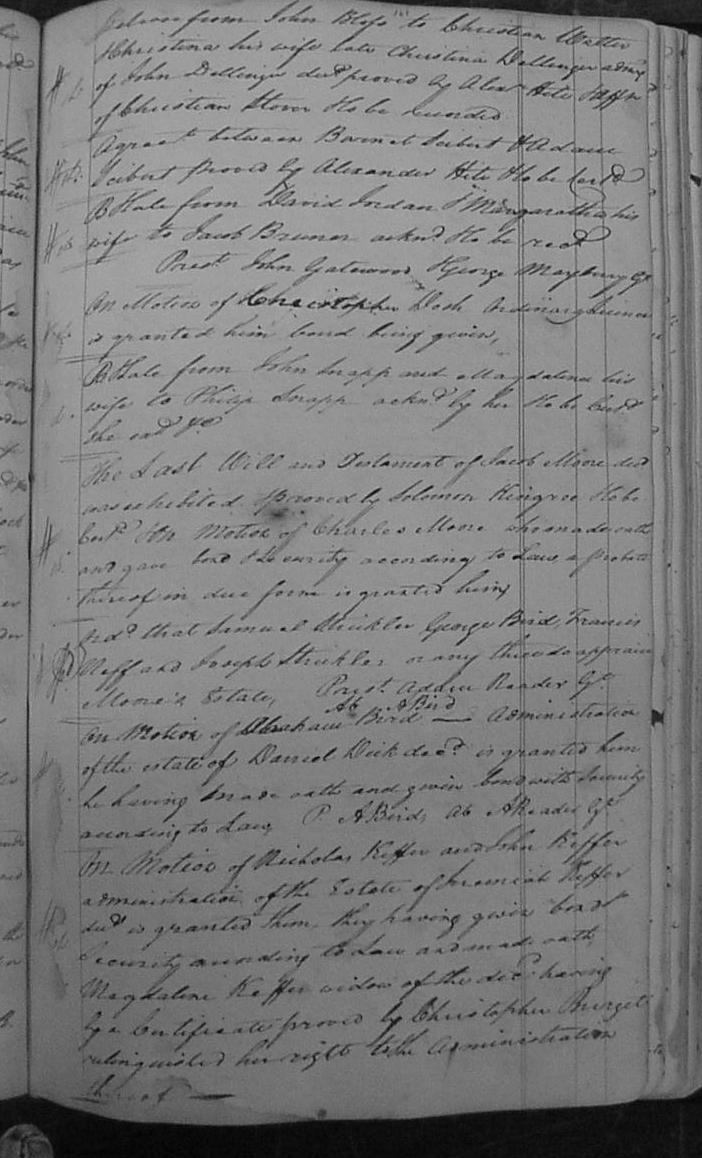 Release from John Bless to Christian Walter
Christina his wife late Christina Dellenger admx
of John Dellinger decd proved by Alexr Hite
of Christian Stover & to be recorded
Agreet between Barnet Seibert & Adam
Seibert proved by Alexander Hite & to be Certd
B Sale from David Jordan & Margaretha his
wife to Jacob Bruner acknd & to be recd
Prest John Gatewood, George Maybury Gt
On Motion of Christopher Dosh Ordinary Licence
is granted him bond being given,
B Sale from John Snapp and Magdalena his
wife to Philip Snapp acknd by her & to be Certd
she exd &c
The Last Will and Testament of Jacob Moore decd
was exhibited proved by Solomon Kingree & to be
Certd & On Motion of Charles Moore who made oath
and gave bond & security according to Law a probate
thereof in due form is granted him
Ordd that Samuel Strickler George Bird, Francis
Neff and Joseph Strickler or any three do appraise
Moore's Estate, Prest Adam Reader Gt
Ab ABird
On Motion of Abraham Bird — Administration
of the estate of Daniel Dick decd is granted him
he having made oath and given bond with Security
according to Law, P ABird, Ab AReader Gt
On Motion of Nicholas Keffer and John Keffer
administration of the Estate of Jeremiah Keffer
decd is granted them, they having given bond &
Security according to Law and made oath,
Magdalene Keffer widow of the decd having
by a Certificate proved by Christopher Burget
relinquished her right to the Administration
thereof —